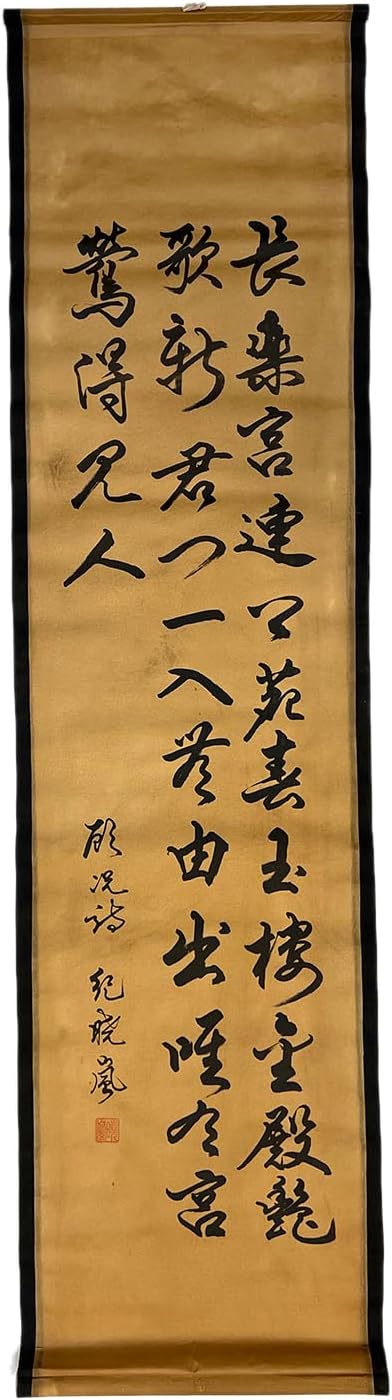 長樂宮連上苑春玉樓金殿艷
歌新君門一入無由出唯有宮
鶯得見人
顧況詩 紀曉嵐